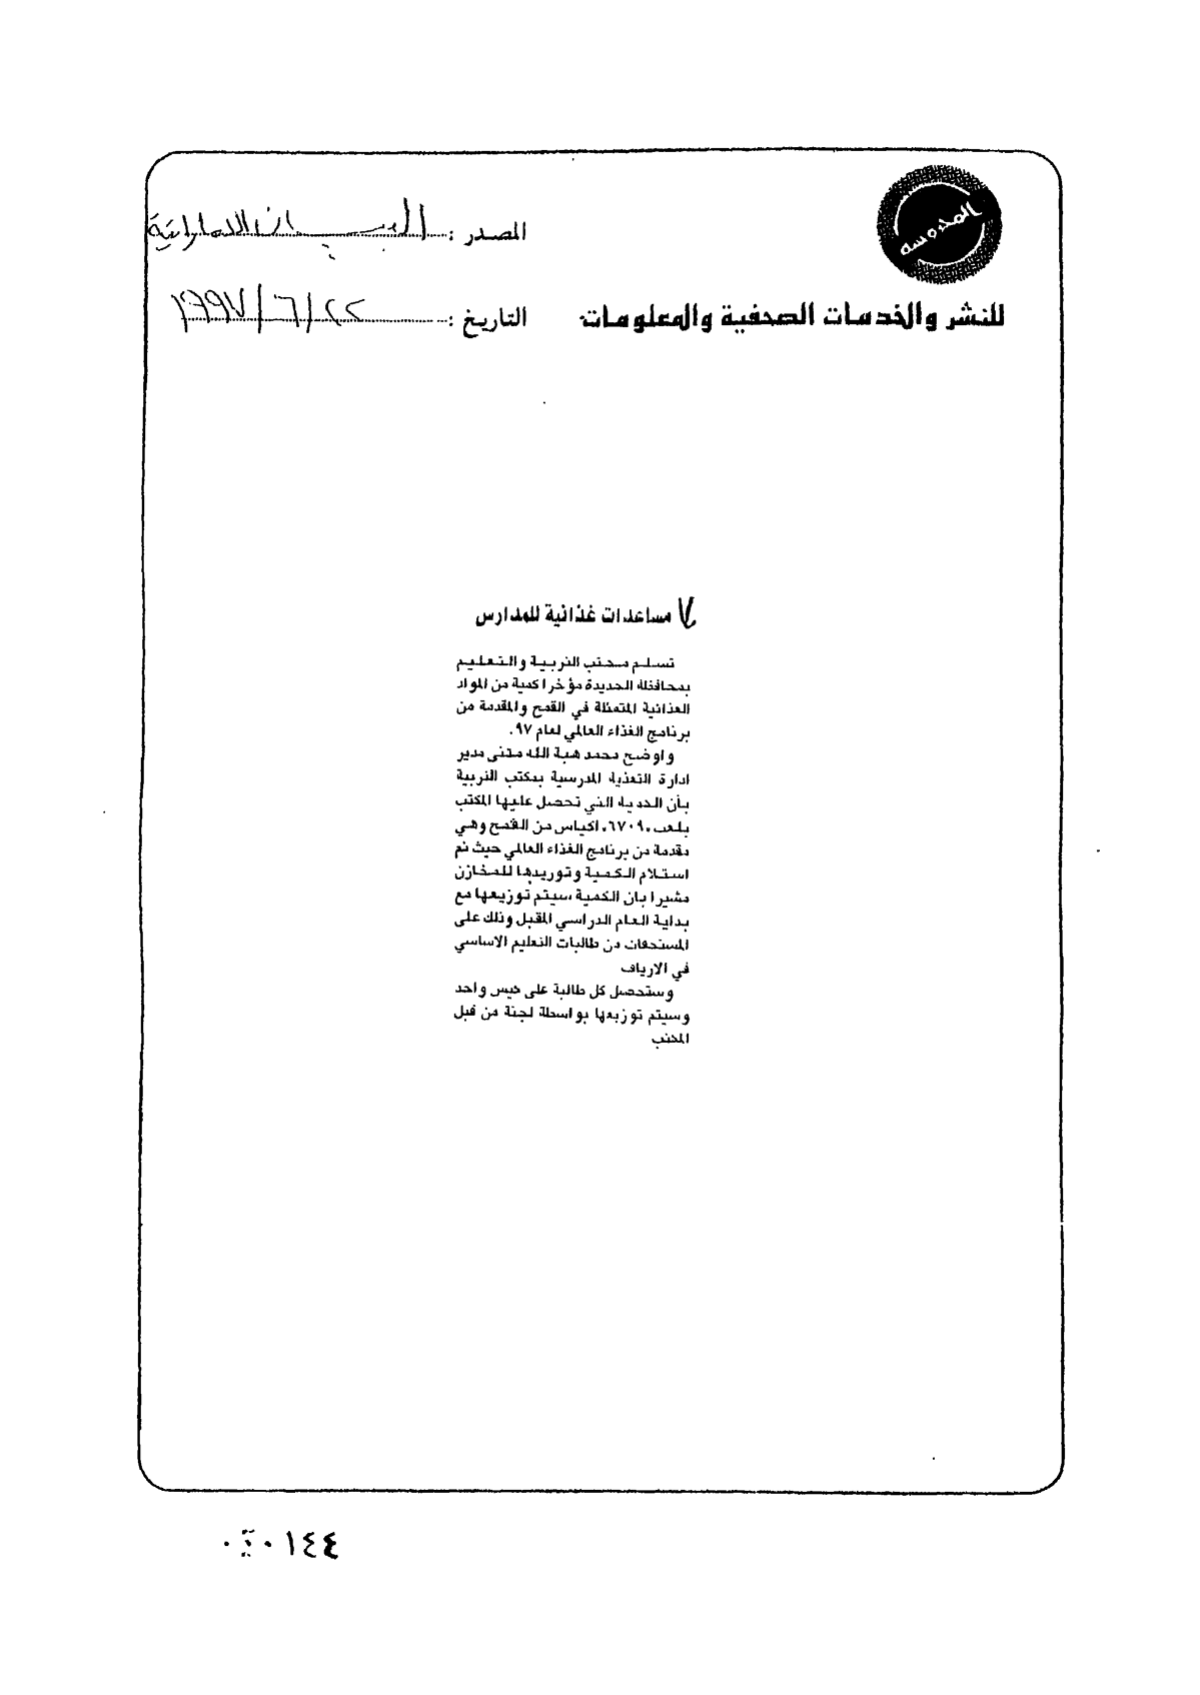 المحروسة
المصدر : البيان الاماراتية
للنشر والخدمات الصحفية والمعلومات
التاريخ : ٢٢/٦/١٩٩٧
مساعدات غذائية للمدارس
تسلم مكتب التربية والتعليم
بمحافظة الحديدة مؤخرا كمية من المواد
الغذائية المتمثلة في القمح والمقدمة من
برنامج الغذاء العالمي لعام ٩٧.
واوضح محمد هبة الله مثنى مدير
ادارة التغذية المدرسية بمكتب التربية
بأن الكمية التي تحصل عليها المكتب
بلغت ٦٧٠٩، اكياس من القمح وهي
مقدمة من برنامج الغذاء العالمي حيث تم
استلام الكمية وتوريدها للمخازن
مشيرا بان الكمية سيتم توزيعها مع
بداية العام الدراسي المقبل وذلك على
المستحقات من طالبات التعليم الاساسي
في الارياف
وستحصل كل طالبة على كيس واحد
وسيتم توزيعها بواسطة لجنة من قبل
المكتب
١٤٤